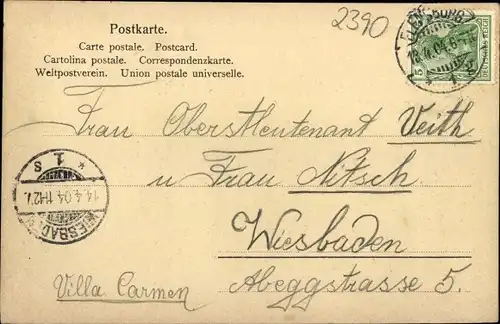 2390
Postkarte.
Carte postale. Postcard.
Cartolina postale. Correspondenzkarte.
Weltpostverein. Union postale universelle.
FLENSBURG
5
DEUTSCHES REICH
Frau Oberstleutenant Veith
u Frau Nitsch
Wiesbaden
Abeggstrasse 5.
Villa Carmen
* 1 S
14.4.04. 11-12 V.
WIESBADEN